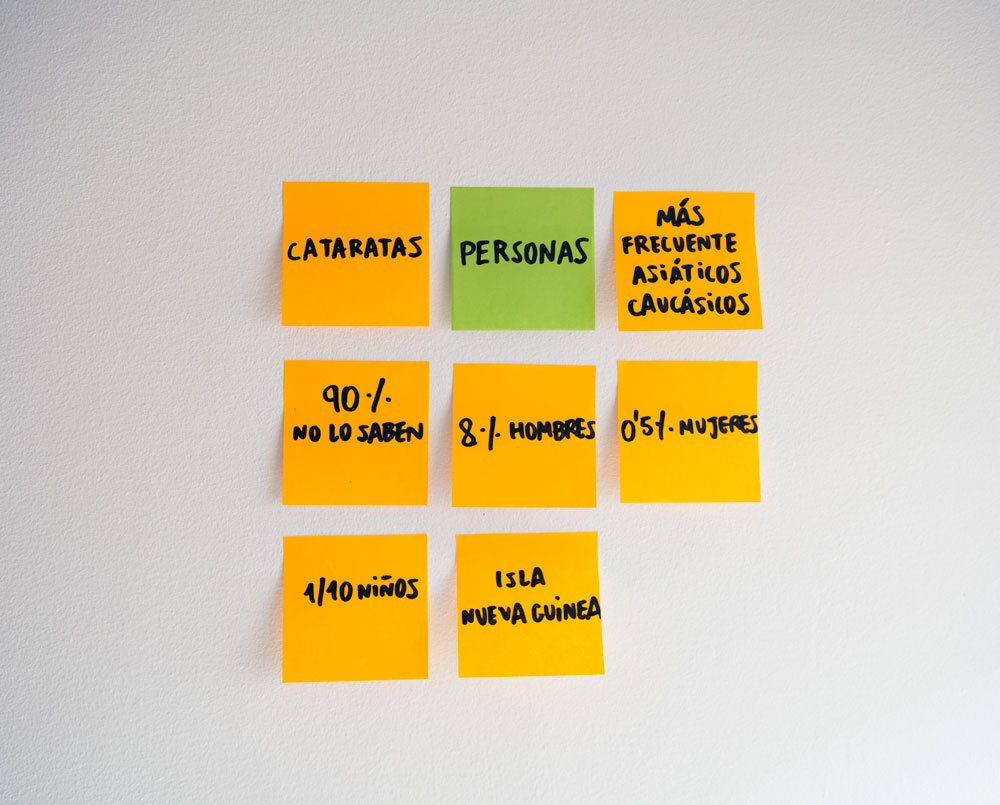 CATARATAS
PERSONAS
MÁS
FRECUENTE
ASIÁTICOS
CAUCÁSICOS
90%
NO LO SABEN
8% HOMBRES
0'5% MUJERES
1/10 NIÑOS
ISLA
NUEVA GUINEA